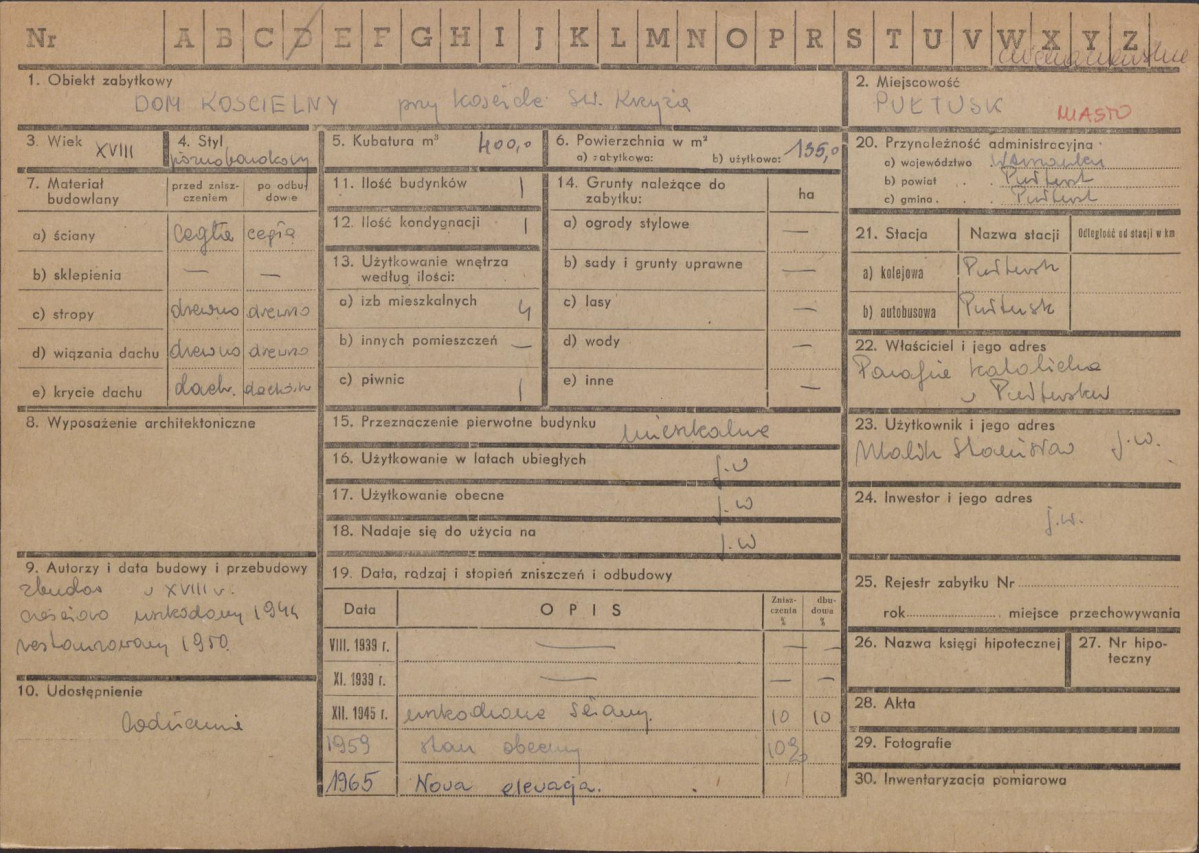 Nr A B C D E F G H I J K L M N O P R S T U V W X Y Z
1. Obiekt zabytkowy
DOM KOSCIELNY przy kościele Św. Krzyża
2. Miejscowość
PUŁTUSK MIASTO
3. Wiek XVIII
4. Styl
późnobarokowy
5. Kubatura m³ 400,0
6. Powierzchnia w m²
a) zabytkowa: b) użytkowa: 135,0
7. Materiał budowlany
przed zniszczeniem
po odbudowie
a) ściany cegła cegła
b) sklepienia — —
c) stropy drewno drewno
d) wiązania dachu drewno drewno
e) krycie dachu dach. dachów.
8. Wyposażenie architektoniczne
9. Autorzy i data budowy i przebudowy
zbudow. w XVIII w.
częściowo uszkodzony 1944
restaurowany 1950.
10. Udostępnienie
codziennie
11. Ilość budynków 1
12. Ilość kondygnacji 1
13. Użytkowanie wnętrza
według ilości:
a) izb mieszkalnych 4
b) innych pomieszczeń —
c) piwnic 1
14. Grunty należące do
zabytku: ha
a) ogrody stylowe —
b) sady i grunty uprawne —
c) lasy —
d) wody —
e) inne —
15. Przeznaczenie pierwotne budynku mieszkalne
16. Użytkowanie w latach ubiegłych j.w
17. Użytkowanie obecne j.w
18. Nadaje się do użycia na j.w
19. Data, rodzaj i stopień zniszczeń i odbudowy
Data OPIS Zniszczenia % dbudowa %
VIII. 1939 r. — — —
XI. 1939 r. — — —
XII. 1945 r. uszkodzone ściany. 10 10
1959 stan obecny 10%
1965 Nowa elewacja.
20. Przynależność administracyjna
a) województwo Warszawskie
b) powiat Pułtusk
c) gmina Pułtusk
21. Stacja Nazwa stacji Odległość od stacji w km
a) kolejowa Pułtusk
b) autobusowa Pułtusk
22. Właściciel i jego adres
Parafia Katolicka
w Pułtusku
23. Użytkownik i jego adres
Malik Stanisław j.w.
24. Inwestor i jego adres
j.w.
25. Rejestr zabytku Nr
rok miejsce przechowywania
26. Nazwa księgi hipotecznej
27. Nr hipoteczny
28. Akta
29. Fotografie
30. Inwentaryzacja pomiarowa